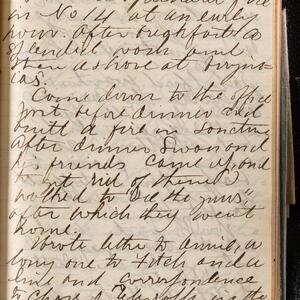 in No 14 at an early
hour. After breakfast a
splendid walk and
then a shave at
Came down to the office
just before dinner and
built a fire in sanctum
after dinner Swan and
his friends came up and
to get rid of them I
walked to see the "
after which they went
home.
Wrote letter to Annie, a
long one to Fitch and a
line and correspondence
to